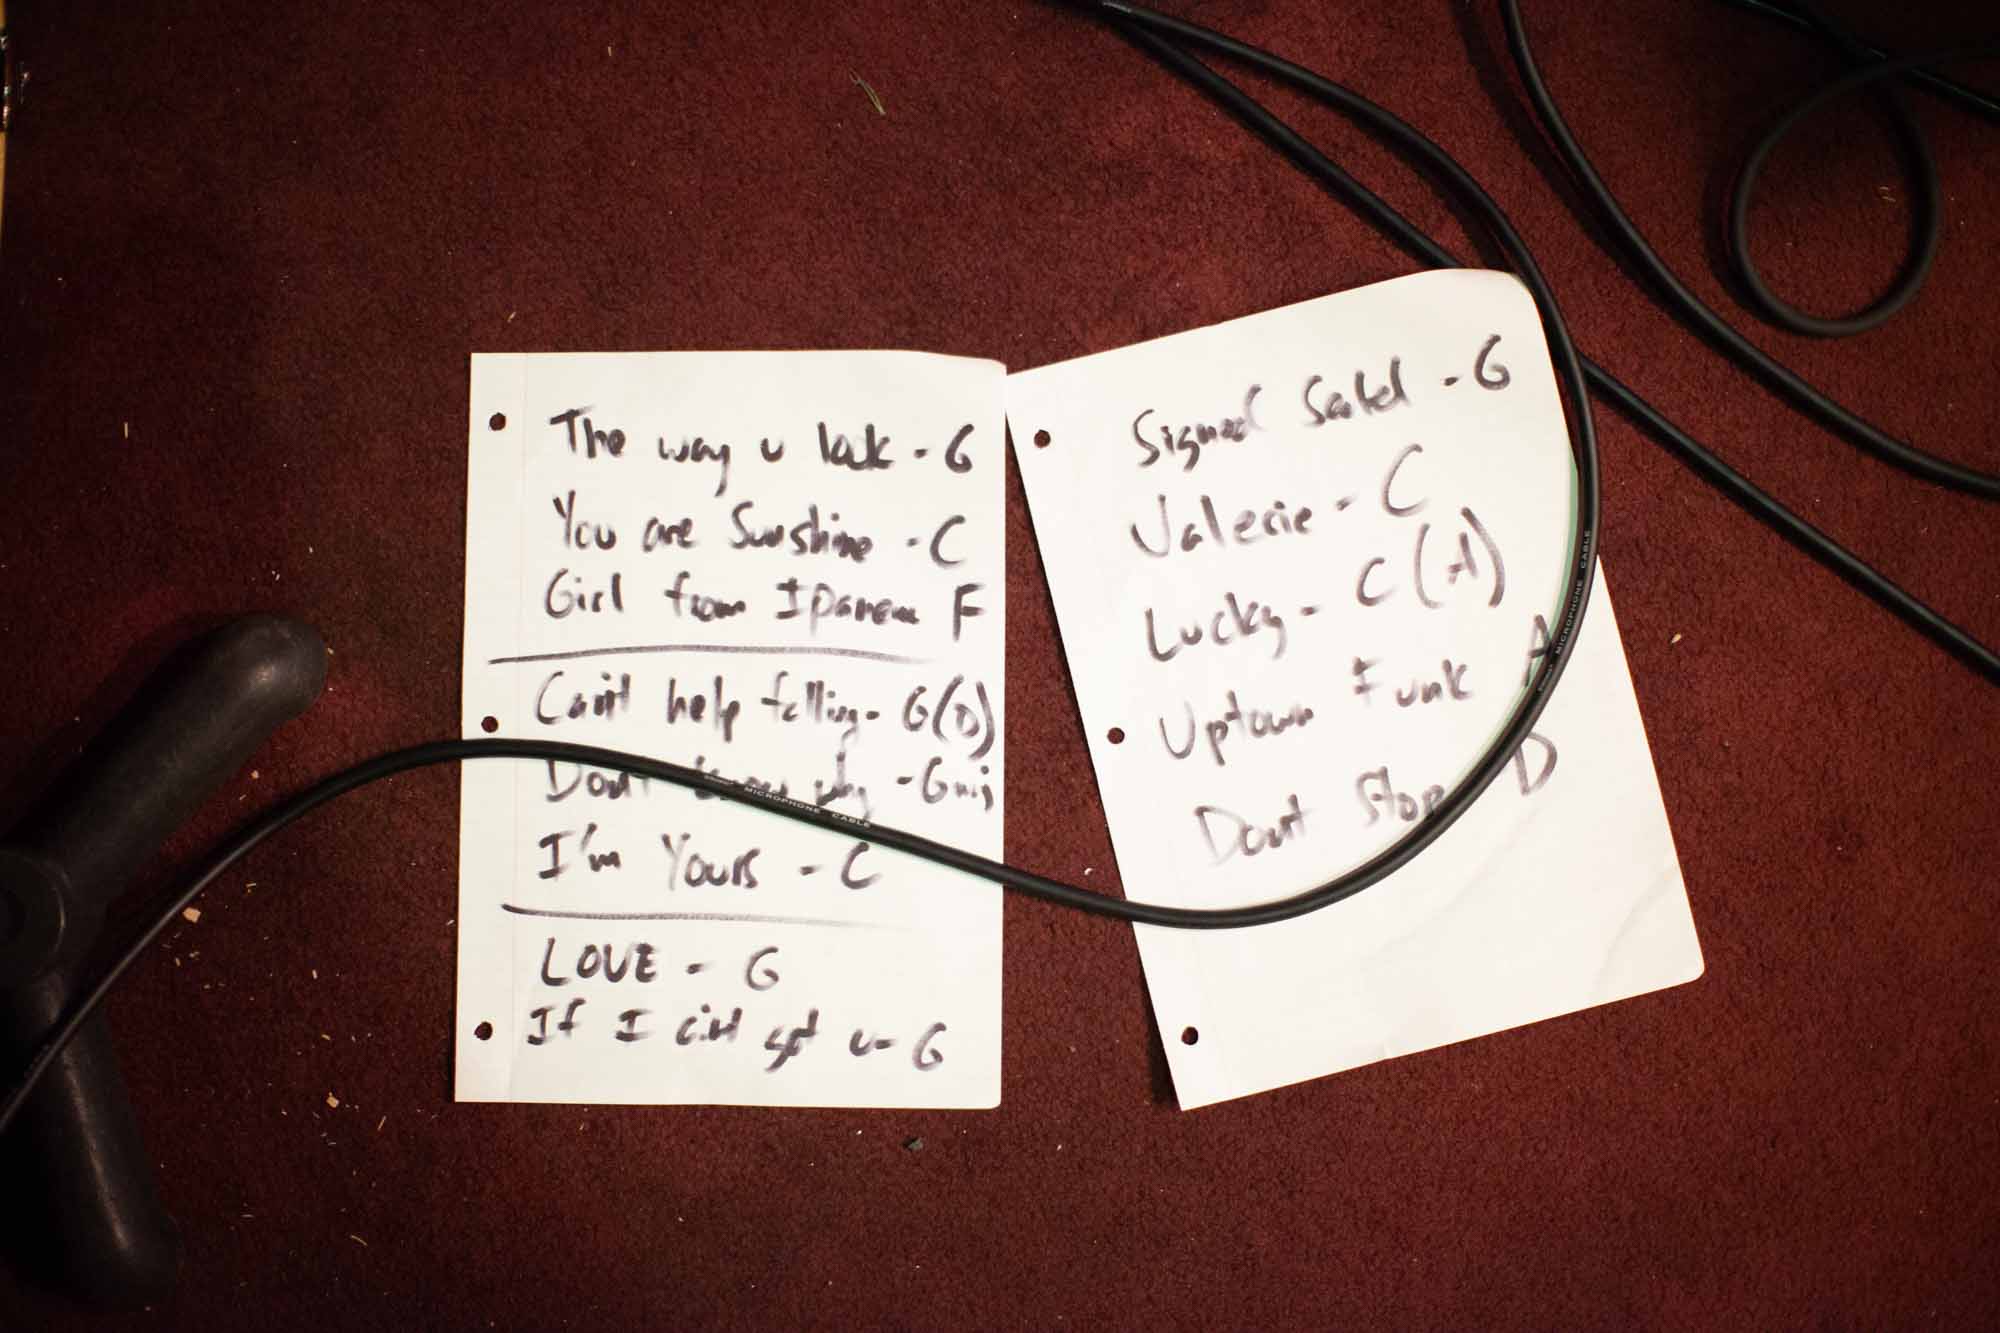 The way u look - G
You are Sunshine - C
Girl from Ipanema F
Can't help falling - G(D)
Dont know why - Gmaj
I'm Yours - C
LOVE - G
If I ain't got u - G
Signed Sealed - G
Valerie - C
Lucky - C (A)
Uptown Funk A
Dont Stop D
MICROPHONE CABLE
MICROPHONE CABLE